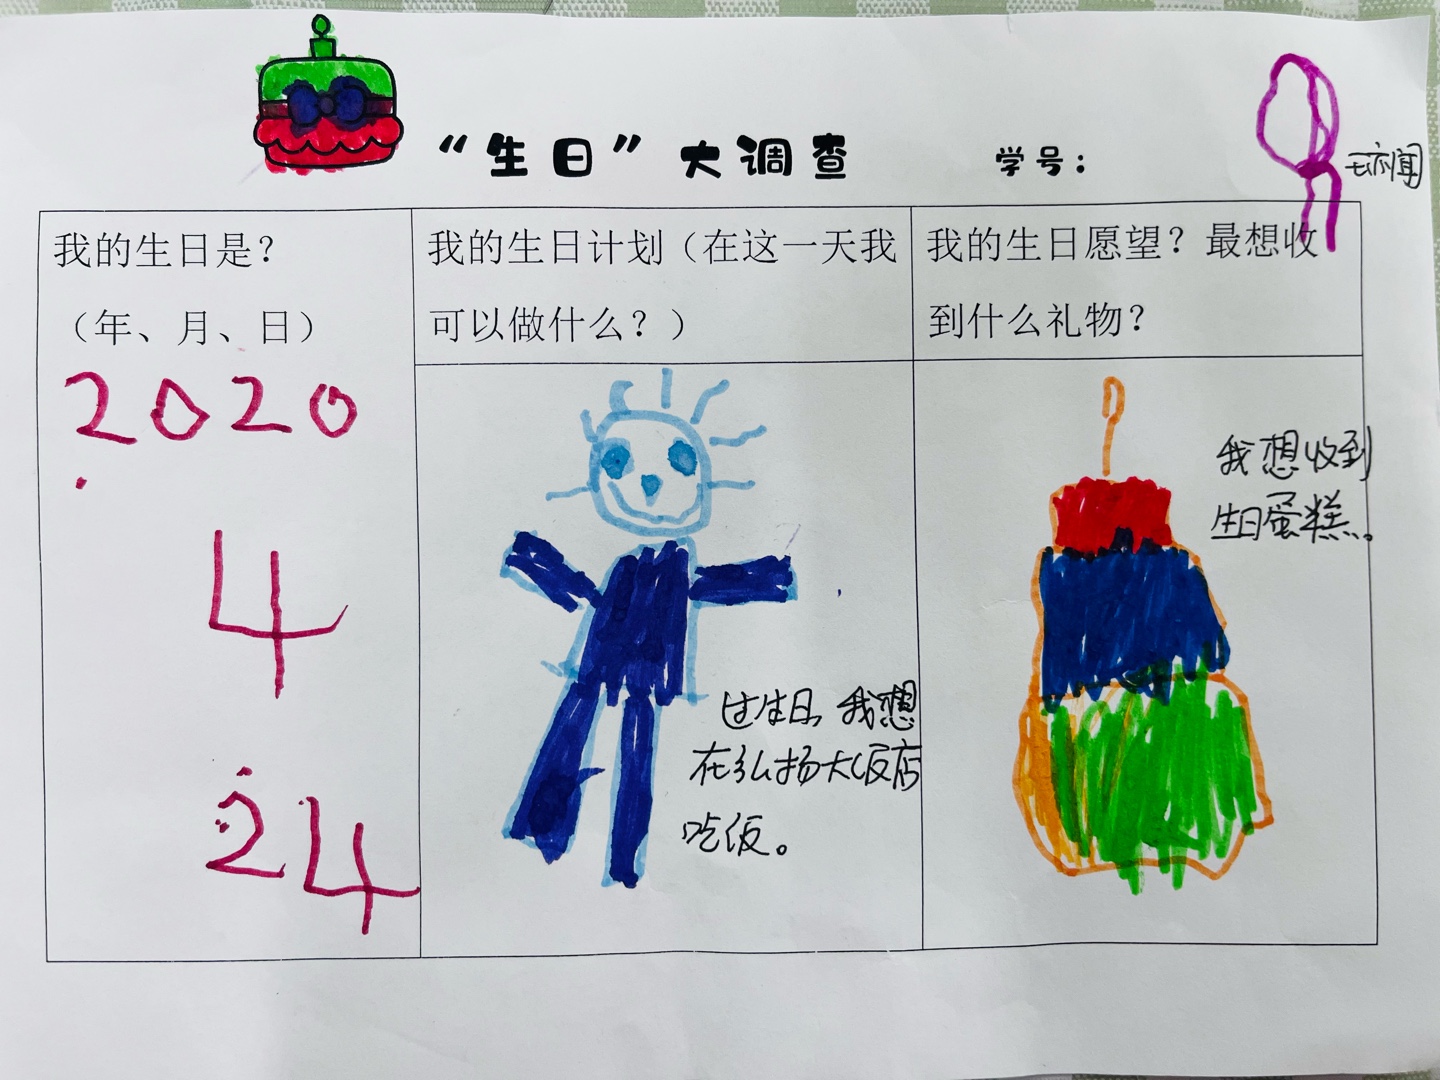 “生日”大调查 学号：
我的生日是？
（年、月、日）
2020
4
24
我的生日计划（在这一天我
可以做什么？）
过生日，我想
在弘扬大饭店
吃饭。
我的生日愿望？最想收
到什么礼物？
我想收到
生日蛋糕。